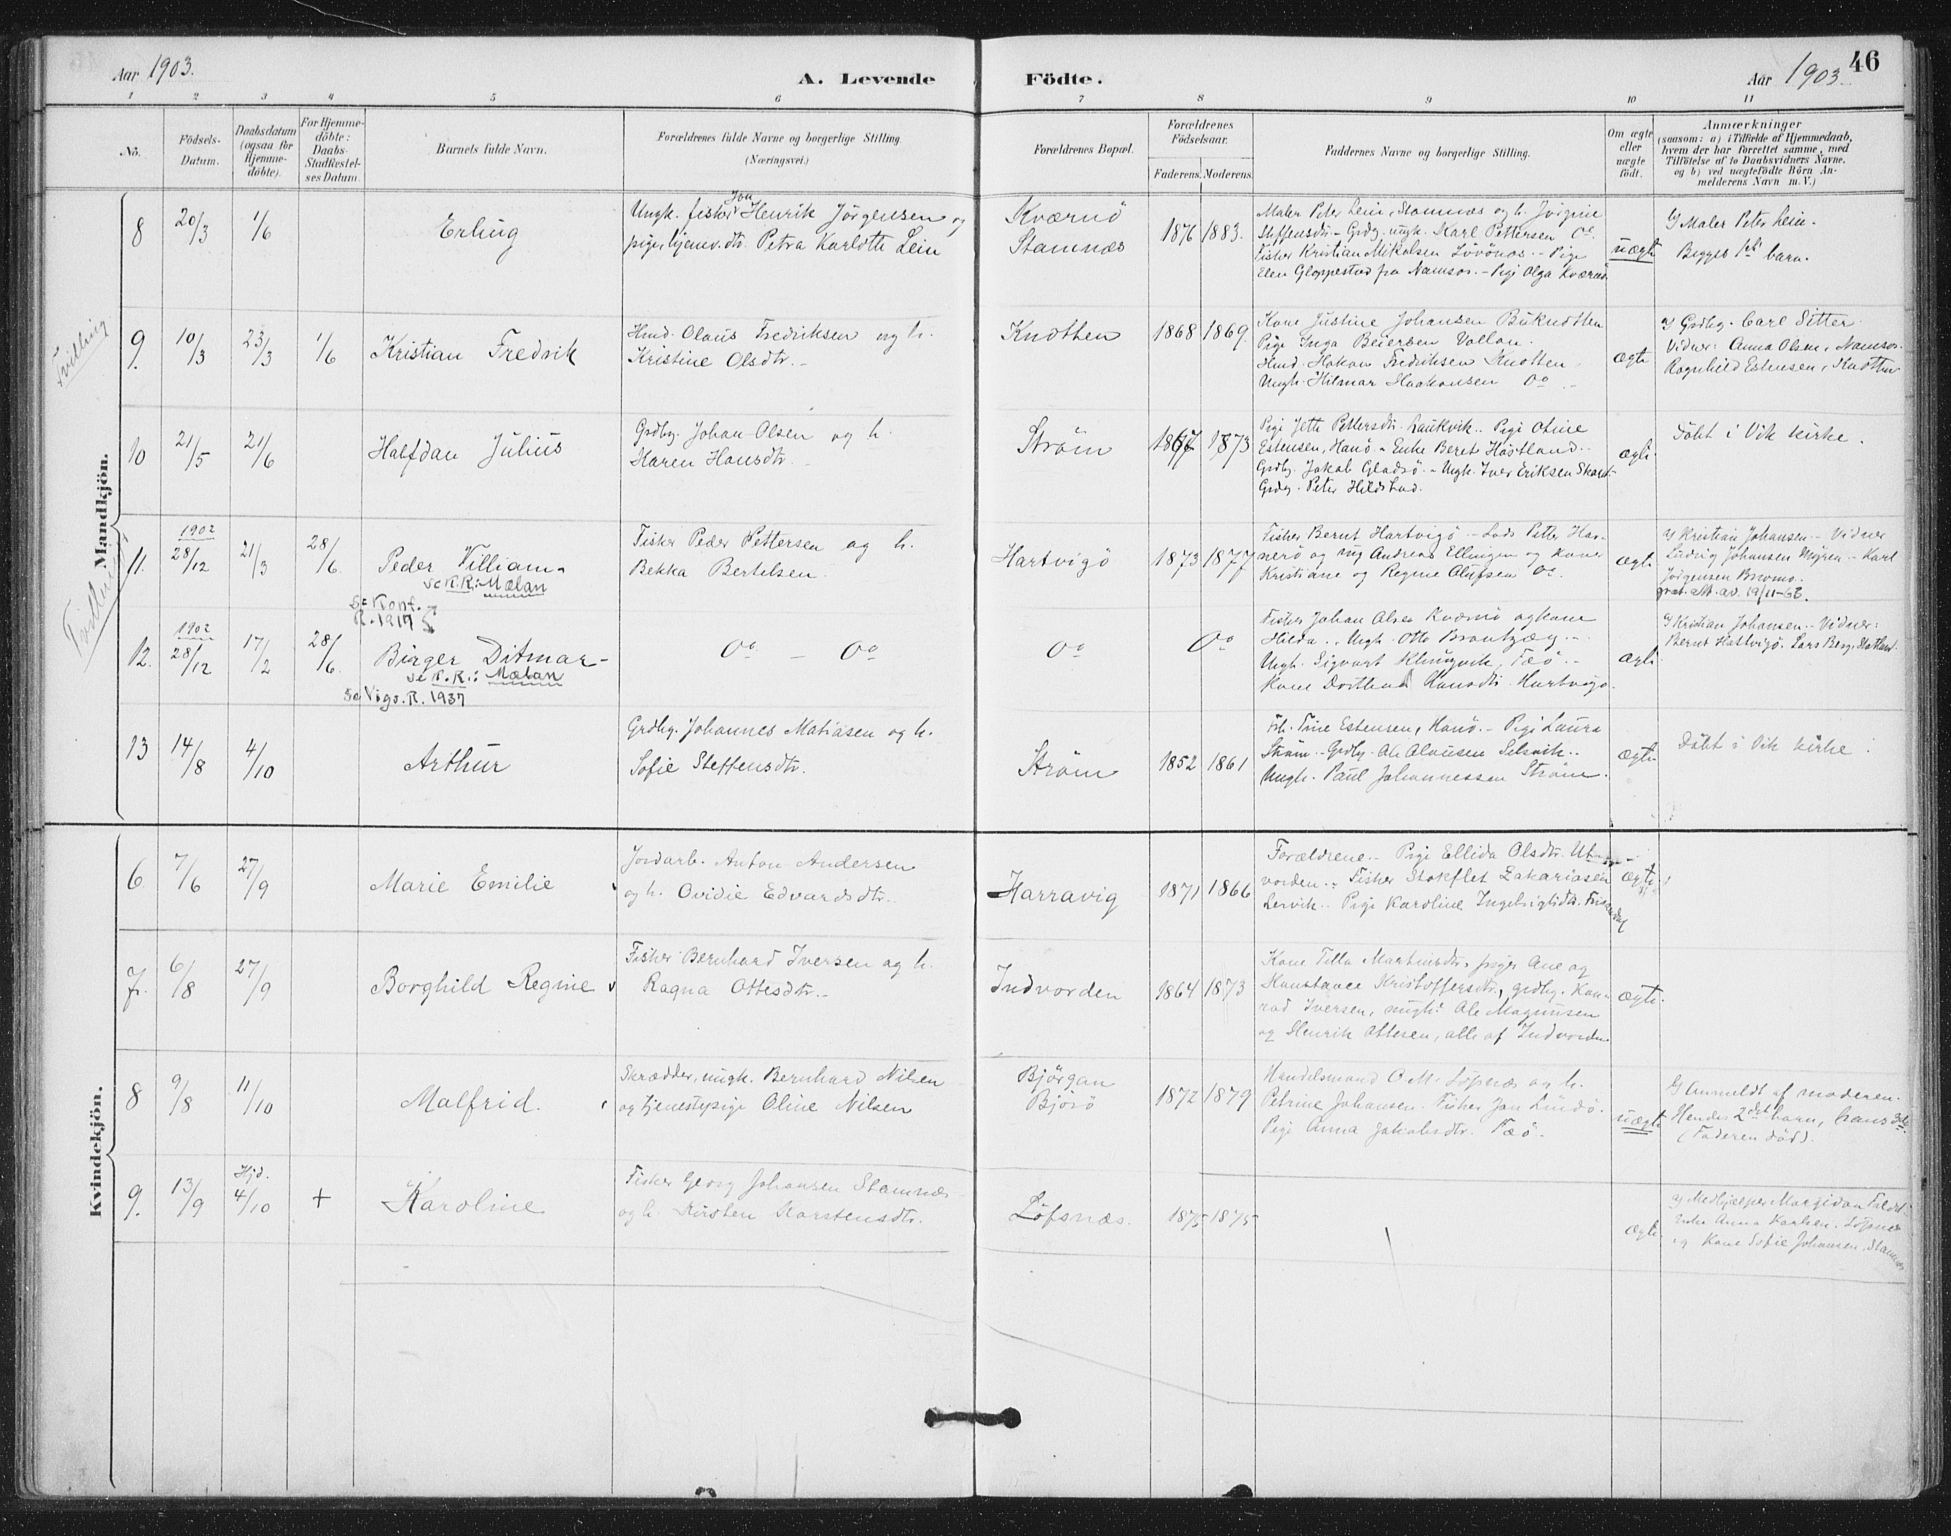 Aar 1903.
A. Levende
Födte.
Aar 1903.
46
1 2 3 4 5 6 7 8 9 10 11
No.
Födsels-
Datum.
Daabsdatum
(ogsaa for
Hjemme-
döbte).
For Hjemme-
döbte:
Daabs-
Stadfæstel-
ses Datum.
Barnets fulde Navn.
Forældrenes fulde Navne og borgerlige Stilling
(Næringsvei.)
Forældrenes Bopæl.
Forældrenes
Födselsaar.
Faderens. Moderens.
Faddernes Navne og borgerlige Stilling.
Om ægte
eller
uægte
födt.
Anmærkninger
(saasom: a) i Tilfælde af Hjemmedaab,
hvem der har forrettet samme, med
Tilföielse af to Daabsvidners Navne,
og b) ved uægtefödte Börn An-
melderens Navn m.V.)
Mandkjön.
8 20/3 1/6 Erling
Jon
Ungk. fisker Henrik Jörgensen og
pige, hjemv. dtr. Petra Karlotte Lein
Kværnö
Stamnæs
1876 1883.
Maler Peter Lein, Stamnæs og h. Jörgine
Steffensdtr. - Grdbg. ungk. Karl Pettersen Oo.
Fisker Kristian Mikalsen Lövönæs. - Pige
Elen Gloppestad fra Namsos. - Pige Olga Kværnö
uægte
Maler Peter Lein.
Begges 1ste barn.
Tvilling
9. 10/3 23/3 1/6 Kristian Fredrik
Hmd. Olaus Fredriksen og h.
Kristine Olsdtr. -
Knotten
1868 1869.
Kone Justine Johansen Buknotten
Pige Inga Beiersen Vollan.
Hmd. Hakon Fredriksen Knotten
Ungk. Hilmar Haakonsen Oo. -
ægte
Grdbg. Carl Sitter.
Vidner: Anna Olsen, Namsos.
Ragnhild Estensen, Knotten
10 21/5 21/6 Halfdan Julius
Grdbg. Johan Olsen og h.
Karen Hansdtr.
Ström
1867 1873
Pige Jette Pettersdtr. Laukvik. Pige Oline
Estensen, Hanö - Enke Beret Höstland.
Grdbg. Jakob Gladsö. - Ungk. Iver Eriksen
Grdbg. Peter Hildstad.
ægte
Döbt i Vik kirke.
11. 1902 28/12 21/3 28/6 Peder Villiam
se K.R.: Mælan
Fisker Peder Pettersen og h.
Bekka Bertelsen.
Hartvigö
1873 1877
Fisker Bernt Hartvigö - Lods Petter Har-
nerö og ung. Andreas Ellingsen og kone
Kristiane og Regine Olufsen Oo.
ægte
Kristian Johansen - Vidner
Ludvig Johansen Myren - Karl
Jörgensen Bromo.
Tvillinger
se Konf.
R. 1917
12. 1902 28/12 17/2 28/6. Birger Ditmar -
se K.R.: Mælan
se Vigs. R. 1937
Oo - Oo
Oo
Oo
Fisker Johan Olsen Kværnö og kone
Hilda. Ungk. Otto Brantzæg -
Ungk. Sigvart Klingvik, Fæö. -
Kone Dorthea Hansdtr. Hartvigö.
ægte
Kristian Johansen. - Vidner:
Bernt Hartvigö. Lars Berg,
13 14/8 4/10 Arthur
Grdbg. Johannes Matiasen og h.
Sofie Steffensdtr.
Ström
1852 1861
Frk. Tine Estensen, Hanö. - Pige Laura
Ström - Grdbg. Ole Olausen Selsvik.
Ungk. Paul Johannessen Ström.
ægte
Döbt i Vik kirke.
Kvindekjön.
6 7/6 27/9 Marie Emilie
Jordarb. Anton Andersen
og h. Ovidie Edvardsdtr.
Harravig
1871 1866
Forældrene. - Pige Ellida Olsdtr.
vorden. - Fisker Stokflet Zakariasen
Lervik. - Pige Karoline
ægte
7. 6/8 27/9 Borghild Regine
Fisker Bernhard Iversen og h.
Ragna Ottesdtr. -
Indvorden
1864 1873
Kone Tilla Martinsdtr, piger Ane og
Konstance Kristoffersdtr, grdbg. Kon-
rad Iversen, ungk. Ole Magnusen
og Henrik Ottesen, alle af Indvorden
ægte.
8 9/8 11/10 Malfrid.
Skrædder, ungk. Bernhard Nilsen
og tjenestepige Oline Nilsen
Björgan
Björö
1872 1879
Handelsmand O. M. Löfsnæs og h.
Petrine Johansen. Fisker Jon Lindö.
Pige Anna Jakobsdtr. Fæö.
uægte
Anmeldt af moderen.
Hendes 2det barn, hans 3die.
(Faderen död).
9. 13/9 Hjd. 4/10 + Karoline
Fisker Georg Johansen Stamnæs
og h. Kirsten Karstensdtr.
Löfsnæs.
1875 1875
ægte.
Medhjælper Margidan
Enke Anna Karlsen. Löfsnæs
og Kone Sofie Johansen, Stamnæs